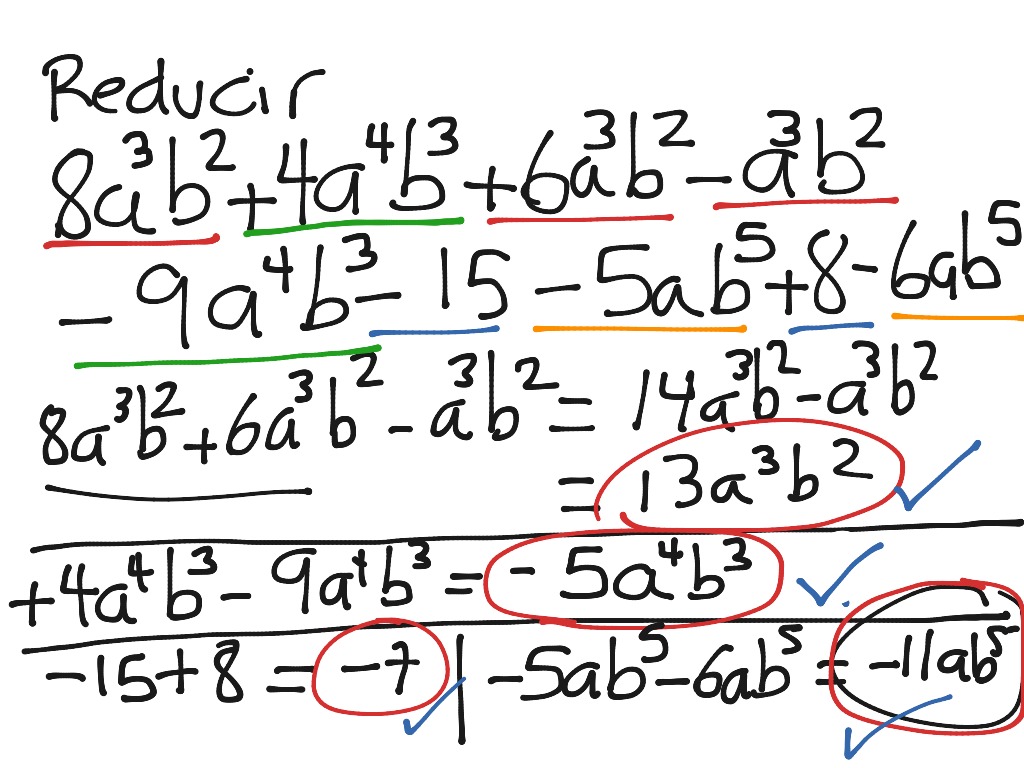 Reducir
8a³b² + 4a⁴b³ + 6a³b² - a³b²
- 9a⁴b³ - 15 - 5ab⁵ + 8 - 6ab⁵
8a³b² + 6a³b² - a³b² = 14a³b² - a³b²
= 13a³b²
+ 4a⁴b³ - 9a⁴b³ = - 5a⁴b³
- 15 + 8 = - 7 | - 5ab⁵ - 6ab⁵ = - 11ab⁵